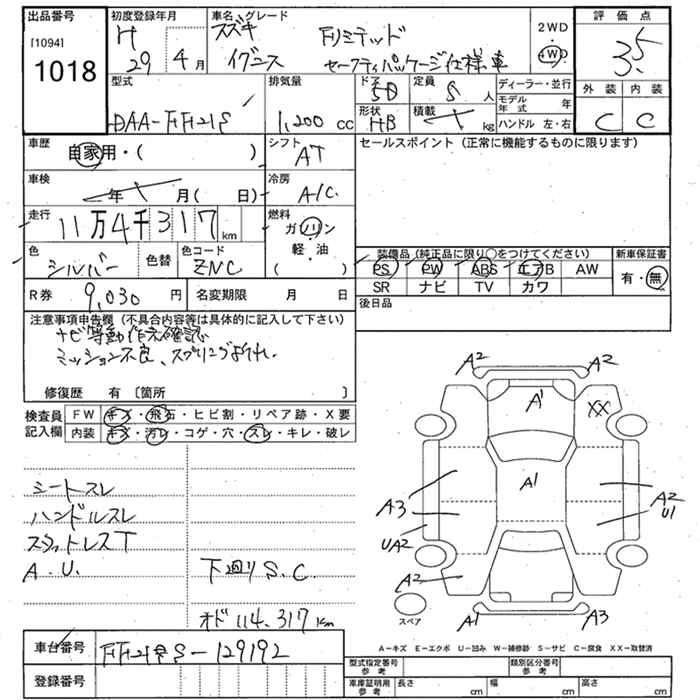 出品番号
[1094]
1018
初度登録年月
H 29年 4月
車名・グレード
スズキ Fリミテッド
イグニス セーフティパッケージ仕様車
2WD
・
4WD
評価点
3.5
外装 内装
C C
型式
DAA-FF21S
排気量
1,200 cc
ドア
5D
定員
5人
形状
HB
積載
kg
ディーラー・並行
モデル年式 年
ハンドル 左・右
車歴
自家用・( )
シフト
AT
セールスポイント (正常に機能するものに限ります)
車検
年 月( 日)
冷房
A/C
走行
11万4千317km
燃料
ガソリン
・
軽・油
( )
色
シルバー
色替
色コード
ZNC
装備品 (純正品に限り○をつけてください)
PS PW ABS エアB AW
SR ナビ TV カワ
新車保証書
有・無
R券 9,030円
名変期限 月 日
後日品
注意事項申告欄 (不具合内容等は具体的に記入して下さい)
ナビ等動作未確認
ミッション不良、スプリングよごれ
修復歴 有 〔箇所 〕
検査員記入欄
FW キズ・飛石・ヒビ割・リペア跡・X要
内装 キズ・汚レ・コゲ・穴・スレ・キレ・破レ
シートスレ
ハンドルスレ
スタットレスT
A.U.
下廻りS.C.
オド 114,317km
A2 A2
A1 XX
A1
A3 A2
U1
UA2
A2
A1 A3
スペア
A-キズ E-エクボ U-凹み W-補修跡 S-サビ C-腐食 XX-取替済
車台番号 FF21S-129192
登録番号
型式指定番号 参考
類別区分番号 参考
車庫証明用 参考
長さ cm 幅 cm 高さ cm